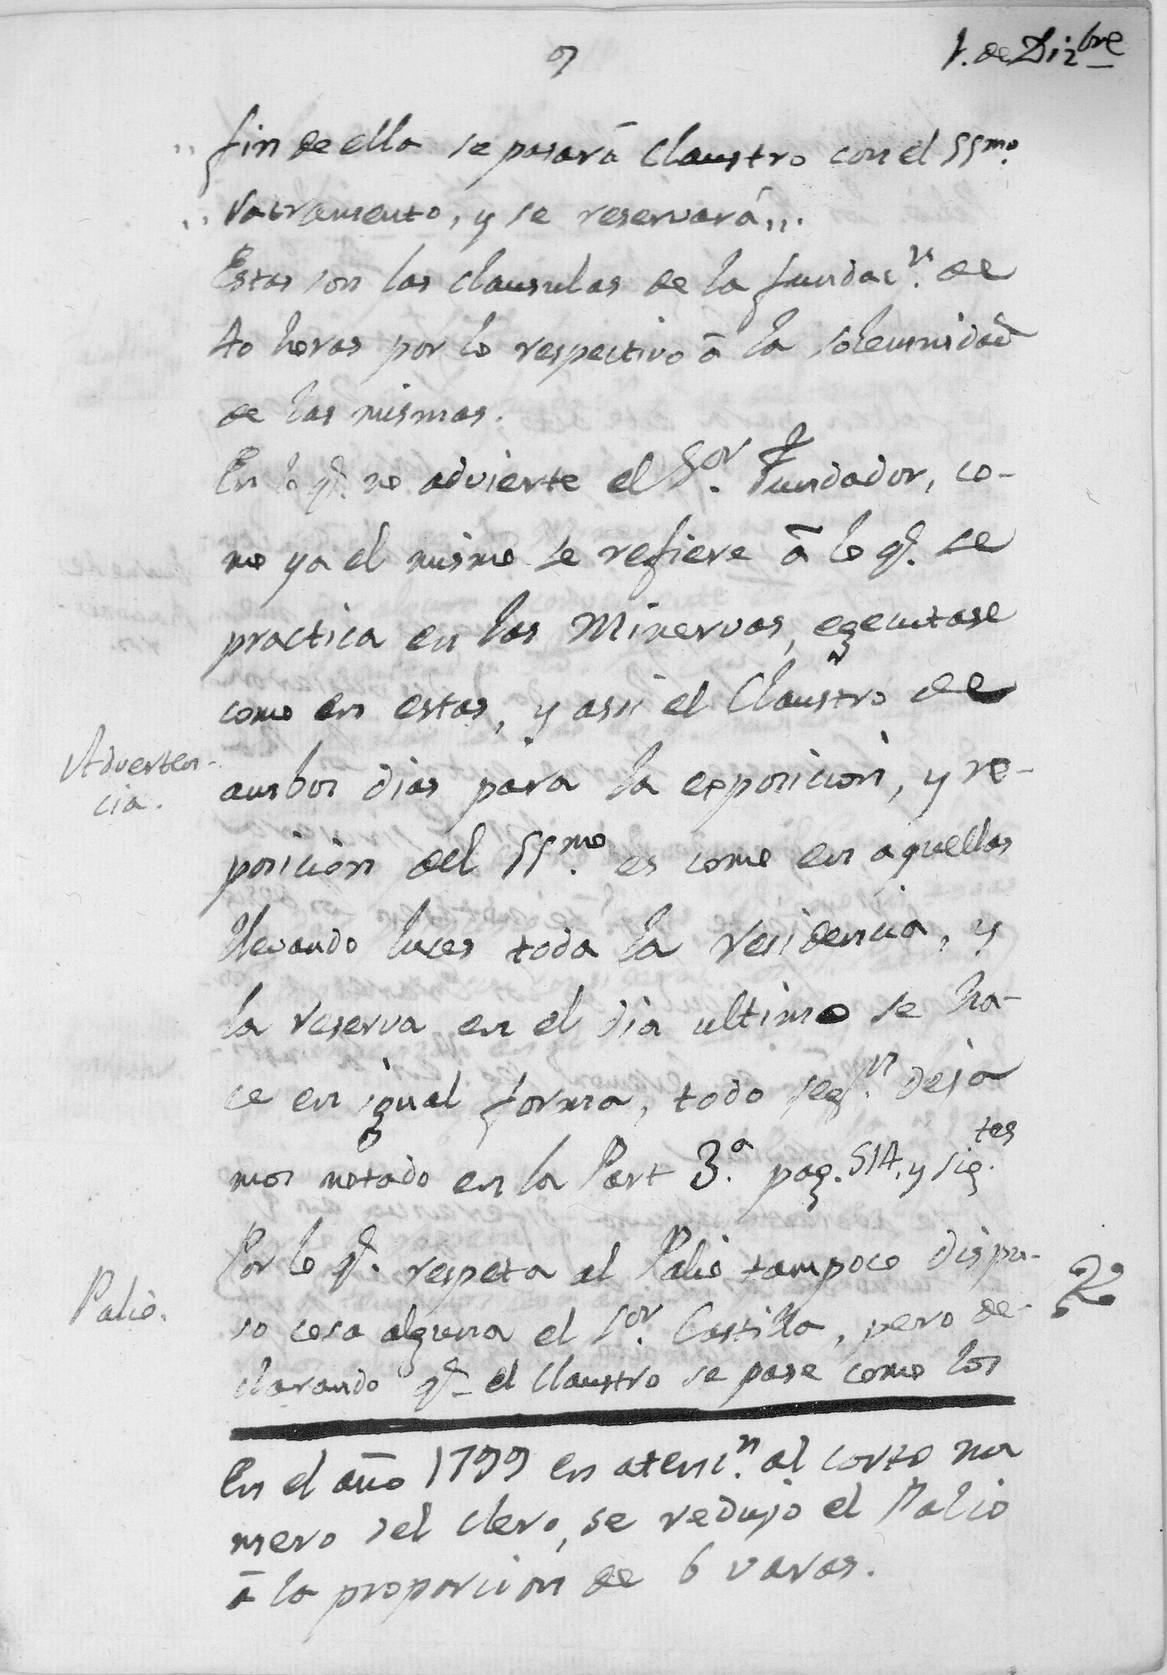 9
1. de Dizbre
,, fin de ella se pasará Claustro con el SSmo.
,, Sacramento, y se reservará,,.
Estas son las clausulas de la fundacn. de
40 horas por lo respectivo á la solemnidad
de las mismas.
En lo q. no advierte el Sor. Fundador, co-
mo ya el mismo se refiere á lo q. se
practica en las Minervas, egecutase
como en estas, y asi el Claustro de
Adverten-
cia.
ambos dias para la exposicion, y re-
posicion del SSmo. es como en aquellas
llevando luces toda la residencia, y
la reserva en el dia ultimo se ha-
ce en igual forma, todo segn. deja
mos notado en la Part 3.a pag. 514. y sig.tes
Palio.
Por lo q. respeta al Palio tampoco dispu-
so cosa alguna el Sor. Castilla, pero de-
clarando q. el Claustro se pase como los
En el año 1799 en atencn. al corto nu
mero del Clero, se redujo el Palio
á la proporcion de 6 varas.